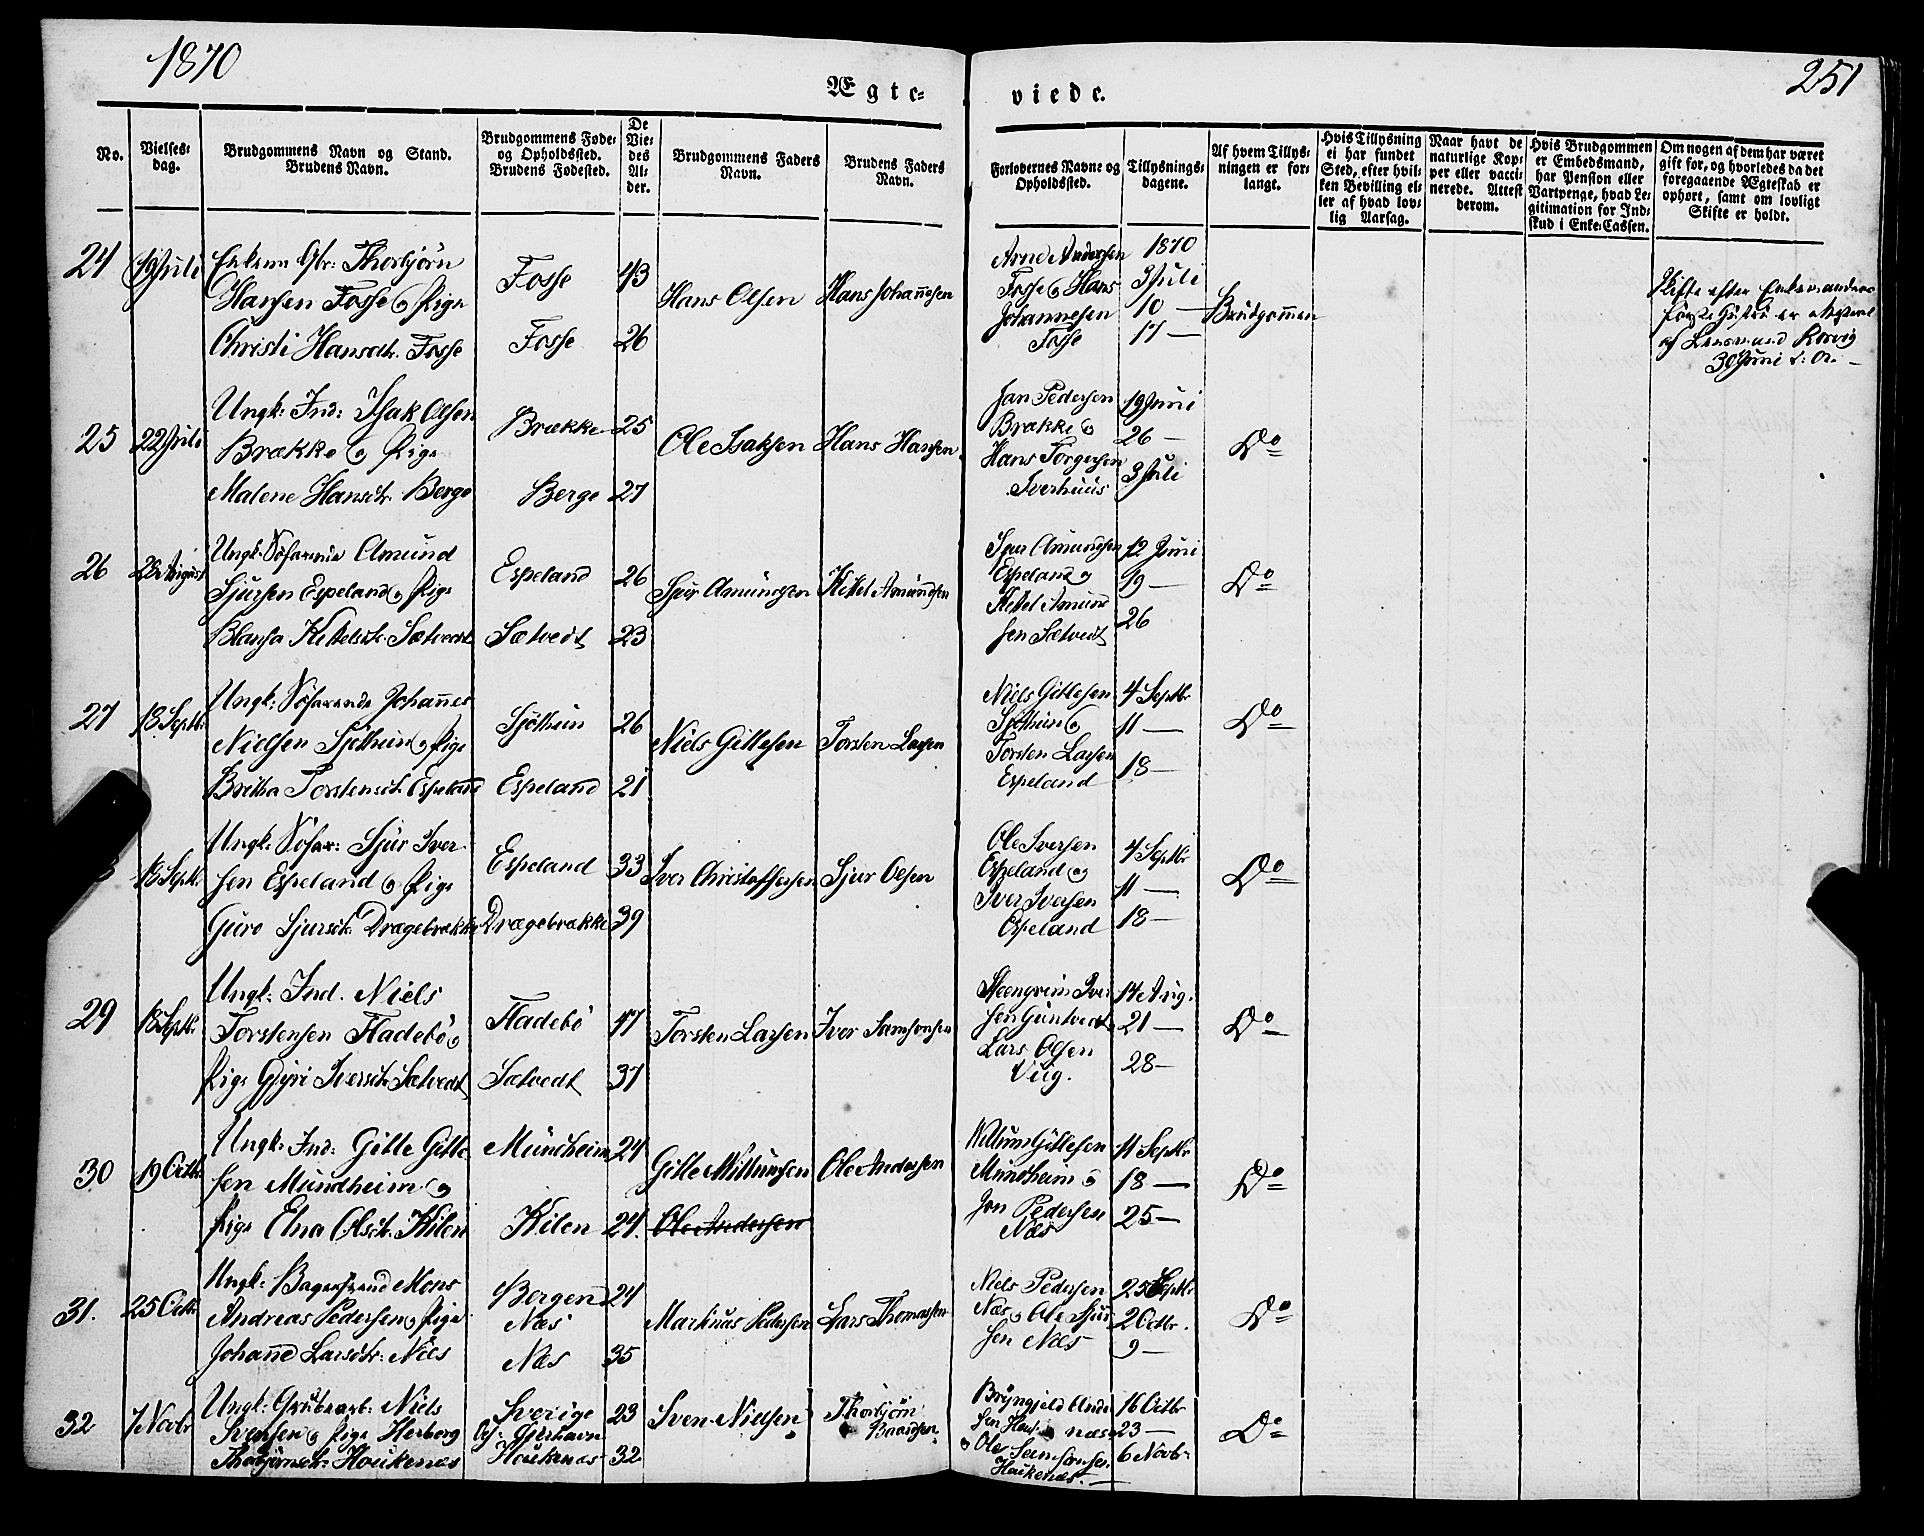 1870
251
Ægte-
viede.
No.
Vielses-
dag.
Brudgommens Navn og Stand.
Brudens Navn.
Brudgommens Føde-
og Opholdssted.
Brudens Fødested.
De
Vie-
des
Al-
der.
Brudgommens Faders
Navn.
Brudens Faders
Navn.
Forlovernes Navne og
Opholdssted.
Tillysnings-
dagene.
Af hvem Tillys-
ningen er for-
langt.
Hvis Tillysning
ei har fundet
Sted, efter hvil-
ken Bevilling el-
ler af hvad lov-
lig Aarsag.
Naar havt de
naturlige Kop-
per eller vacci-
nerede. Attest
derom.
Hvis Brudgommen
er Embedsmand,
har Pension eller
Vartpenge, hvad Le-
gitimation for Ind-
skud i Enke-Cassen.
Om nogen af dem har været
gift før, og hvorledes da det
foregaaende Ægteskab er
ophørt, samt om lovligt
Skifte er holdt.
24
19 Juli
Enkem Gbr: Thorbjörn
Hansen Fosse og Pige
Christi Hansdtr. Fosse
Fosse
Fosse
43
26
Hans Olsen
Hans Johannesen
Arne Andersen
Fosse og Hans
Johannesen
Fosse
1870
3 Juli
10 —
17 —
Brudgommen
Skifte efter Enkemandens
første Hustru er
af Lensmand
30 Juni
25
22 Juli
Ungk: Ind: Isak Olsen
Brække og Pige
Malene Hansdtr. Berge
Brække
Berge
25
27
Ole Isaksen
Hans Hansen
Jan Pedersen
Brække og
Hans Torgersen
Iverhuus
19 Juni
26 —
3 Juli
Do
26
28 August
Ungk: Søfarende Amund
Sjursen Espeland og Pige
Kittelsdtr. Sætvedt
Espeland
Sætvedt
26
23
Sjur Amundsen
Kittel Amundsen
Sjur Amundsen
Espeland og
Kittel Amund
sen Sætvedt
12 Juni
19 —
26
Do
27
18 Septbr.
Ungk: Søfarende Johannes
Nielsen Sjöthun og Pige
Britha Torstensdt. Espeland
Sjöthun
Espeland
26
21
Niels Gittlesen
Torsten Larsen
Niels Gitlesen
Sjöthun og
Torsten Larsen
Espeland
4 Septbr
11 —
18 —
Do
18 Septbr.
Ungk: Søfar: Sjur Iver
sen Espeland og Pige
Guro Sjursdt. Drægebrække
Espeland
Drægebrække
33
39
Iver Christoffersen
Sjur Olsen
Ole Iversen
Espeland og
Iver Iversen
Espeland
4 Septbr
11 —
18 —
Do
29
18 Septbr.
Ungk: Ind. Niels
Torstensen Fladebö og
Pige Gyri Iversdt. Sætvedt
Fladebö
Sætvedt
47
37
Torsten Larsen
Iver Samsonsen
Steengrim Iver
sen Guntvedt
Lars Olsen
Viig.
14 Aug.
21 —
28 —
Do
30
19 Octbr
Ungk: Ind: Gitle Gitle
sen Mundheim og
Pige Elna Olsdt. Kilen
Mundheim
Kilen
24
24.
Gitle Villumsen
Ole Andersen
Ole Andersen
Willum Gitlesen
Mundheim og
Jon Pedersen
Næs
11 Septbr
18 —
25 —
Do
31.
25 Octbr
Ungk: Mons
Andreas Pedersen og Pige
Johanne Larsdtr: Næs
Bergen
Næs
Næs
24
35
Markus Pedersen
Lars Thomassen
Niels Pedersen
Næs og Ole Sjur
sen Næs
25 Septbr
2 Octbr.
9 —
Do
32
7 Novbr
Ungk: Grubearb: Niels
Svensen og Pige Herborg
Thorbjörnsdt: Houkenæs
Sverige
Houkenæs
23
32
Sven Nielsen
Thorbjörn
Baardsen
Bryngjeld
næs
og Ole
Samsonsen
Houkenæs. —
16 Octbr
23 —
6 Novbr
Do